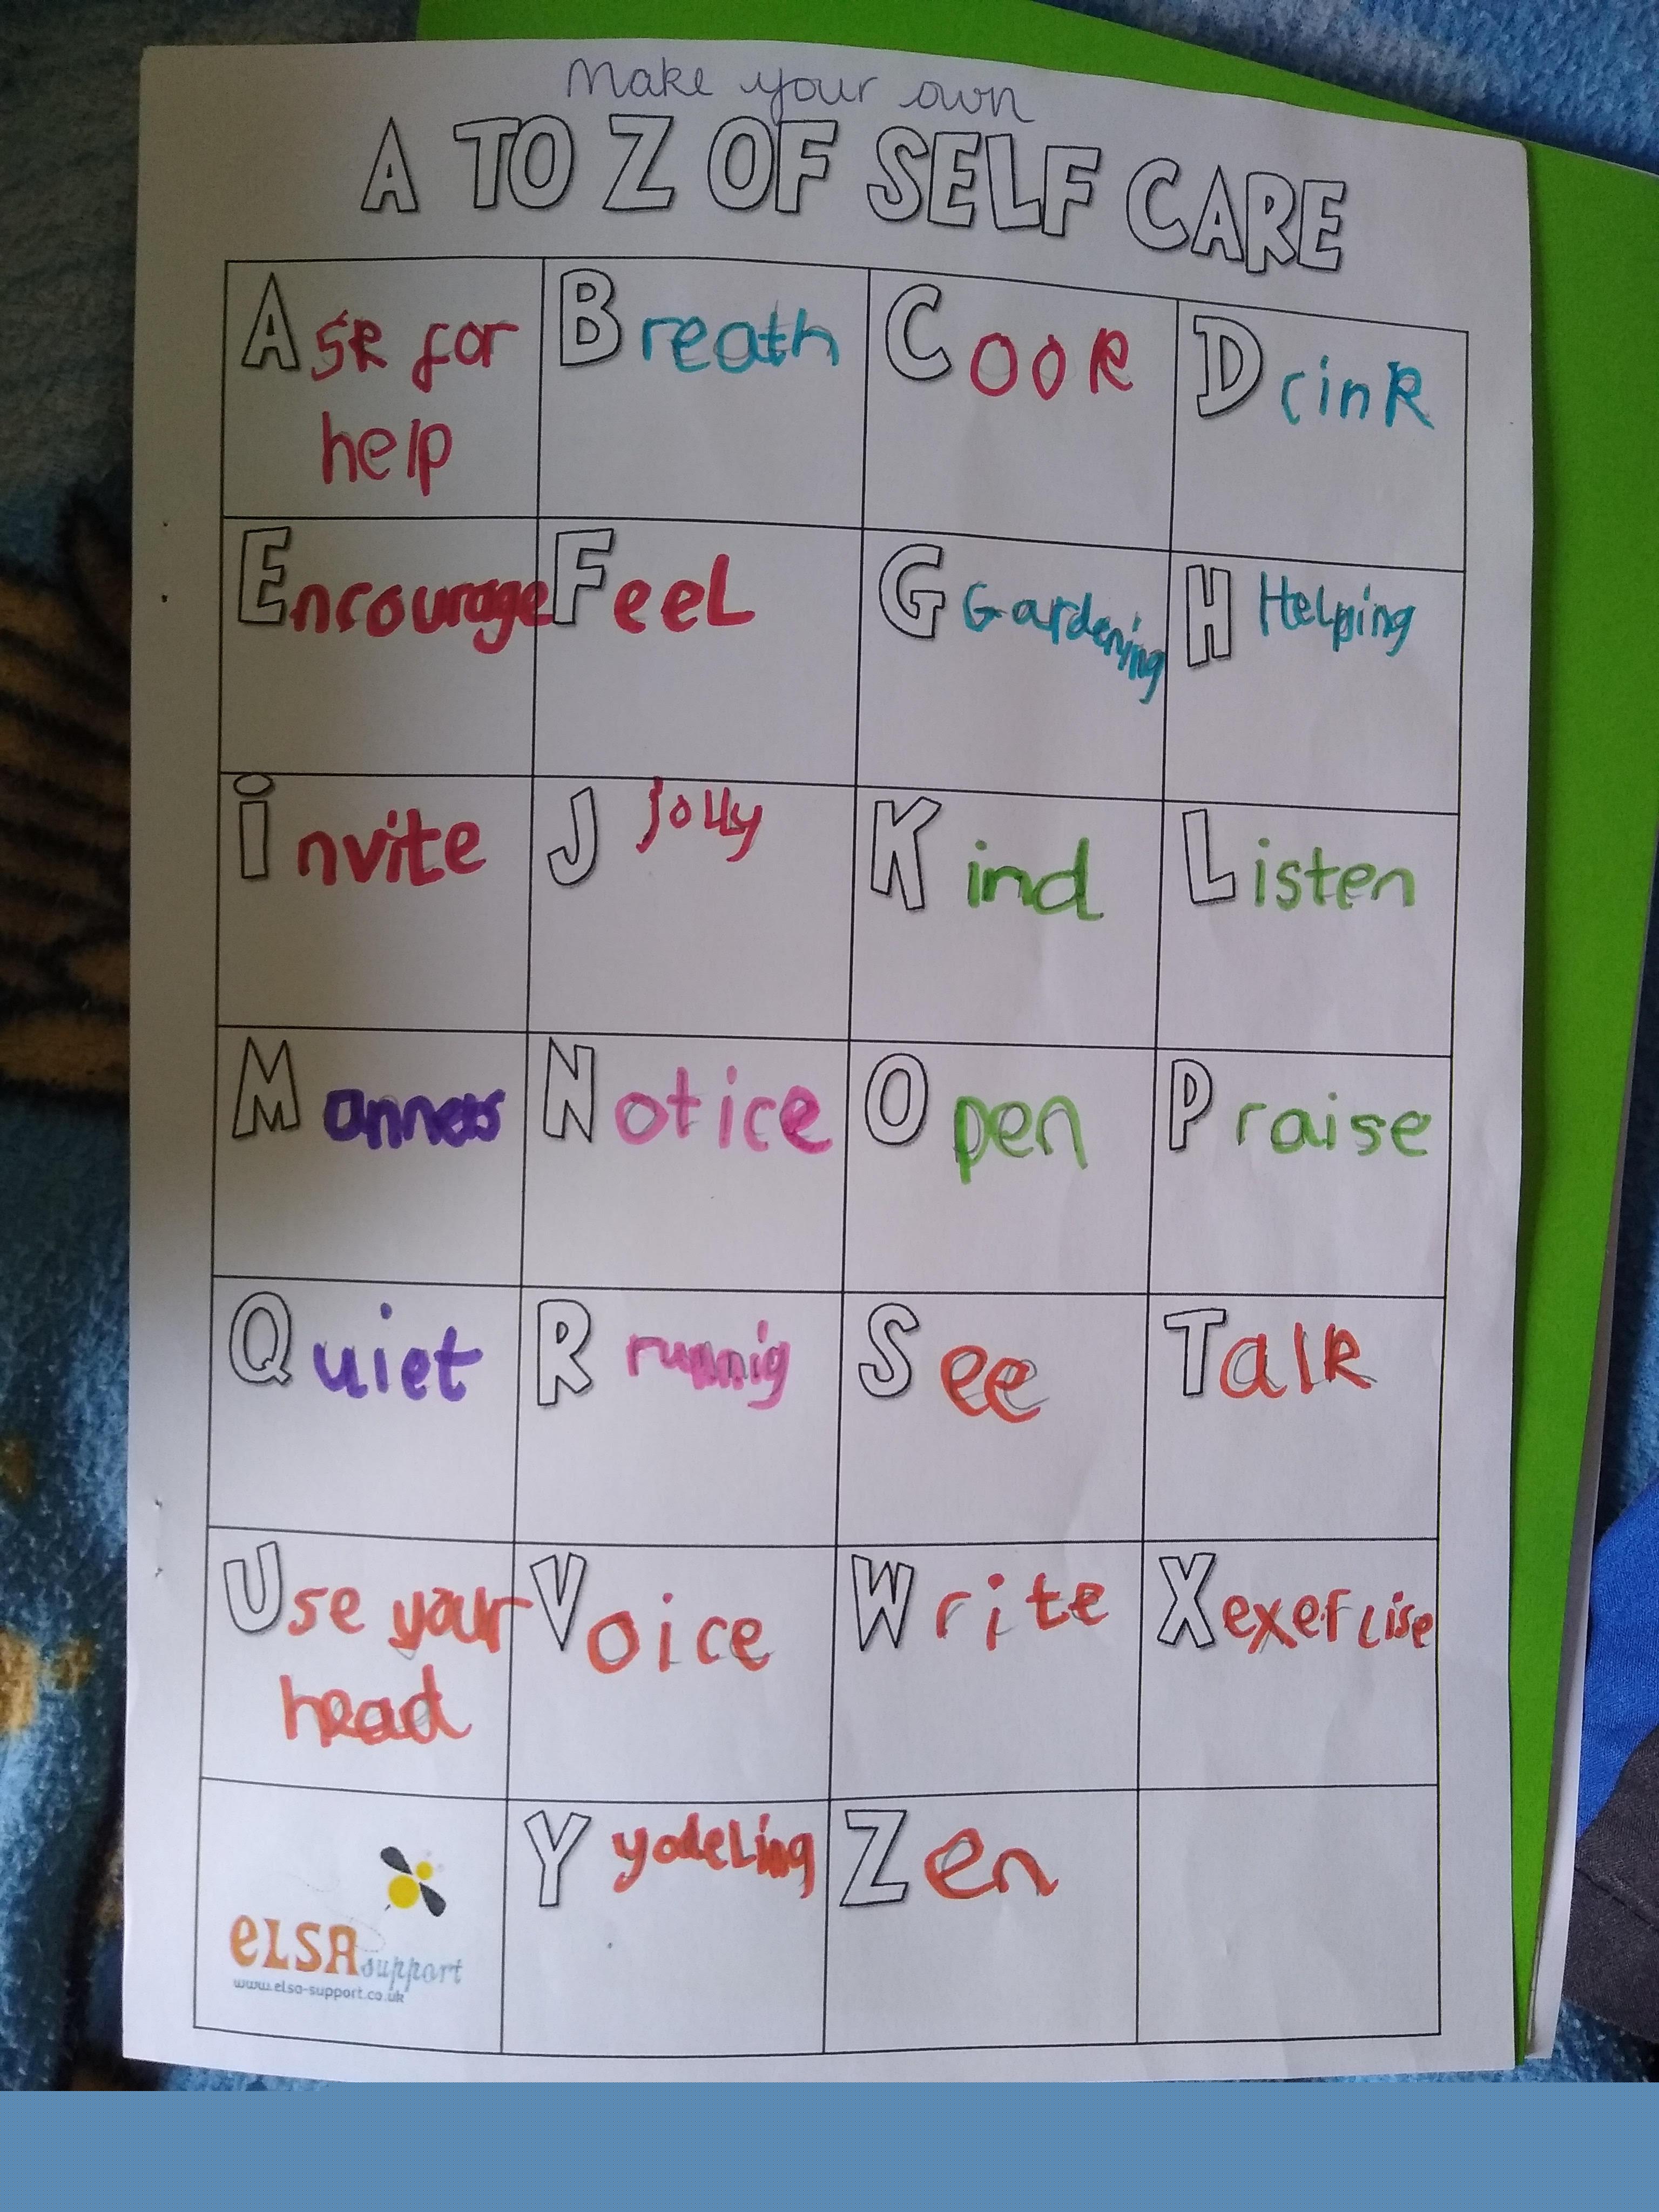 Make your own
A TO Z OF SELF CARE
Ask for
help
Breath
Cook
Drink
Encourage
Feel
G Gardening
H Helping
invite
J Jolly
Kind
Listen
Manners
Notice
Open
Praise
Quiet
R runnig
See
Talk
Use your
head
Voice
Write
X exercise
eLSA support
www.elsa-support.co.uk
Y yodeling
Zen